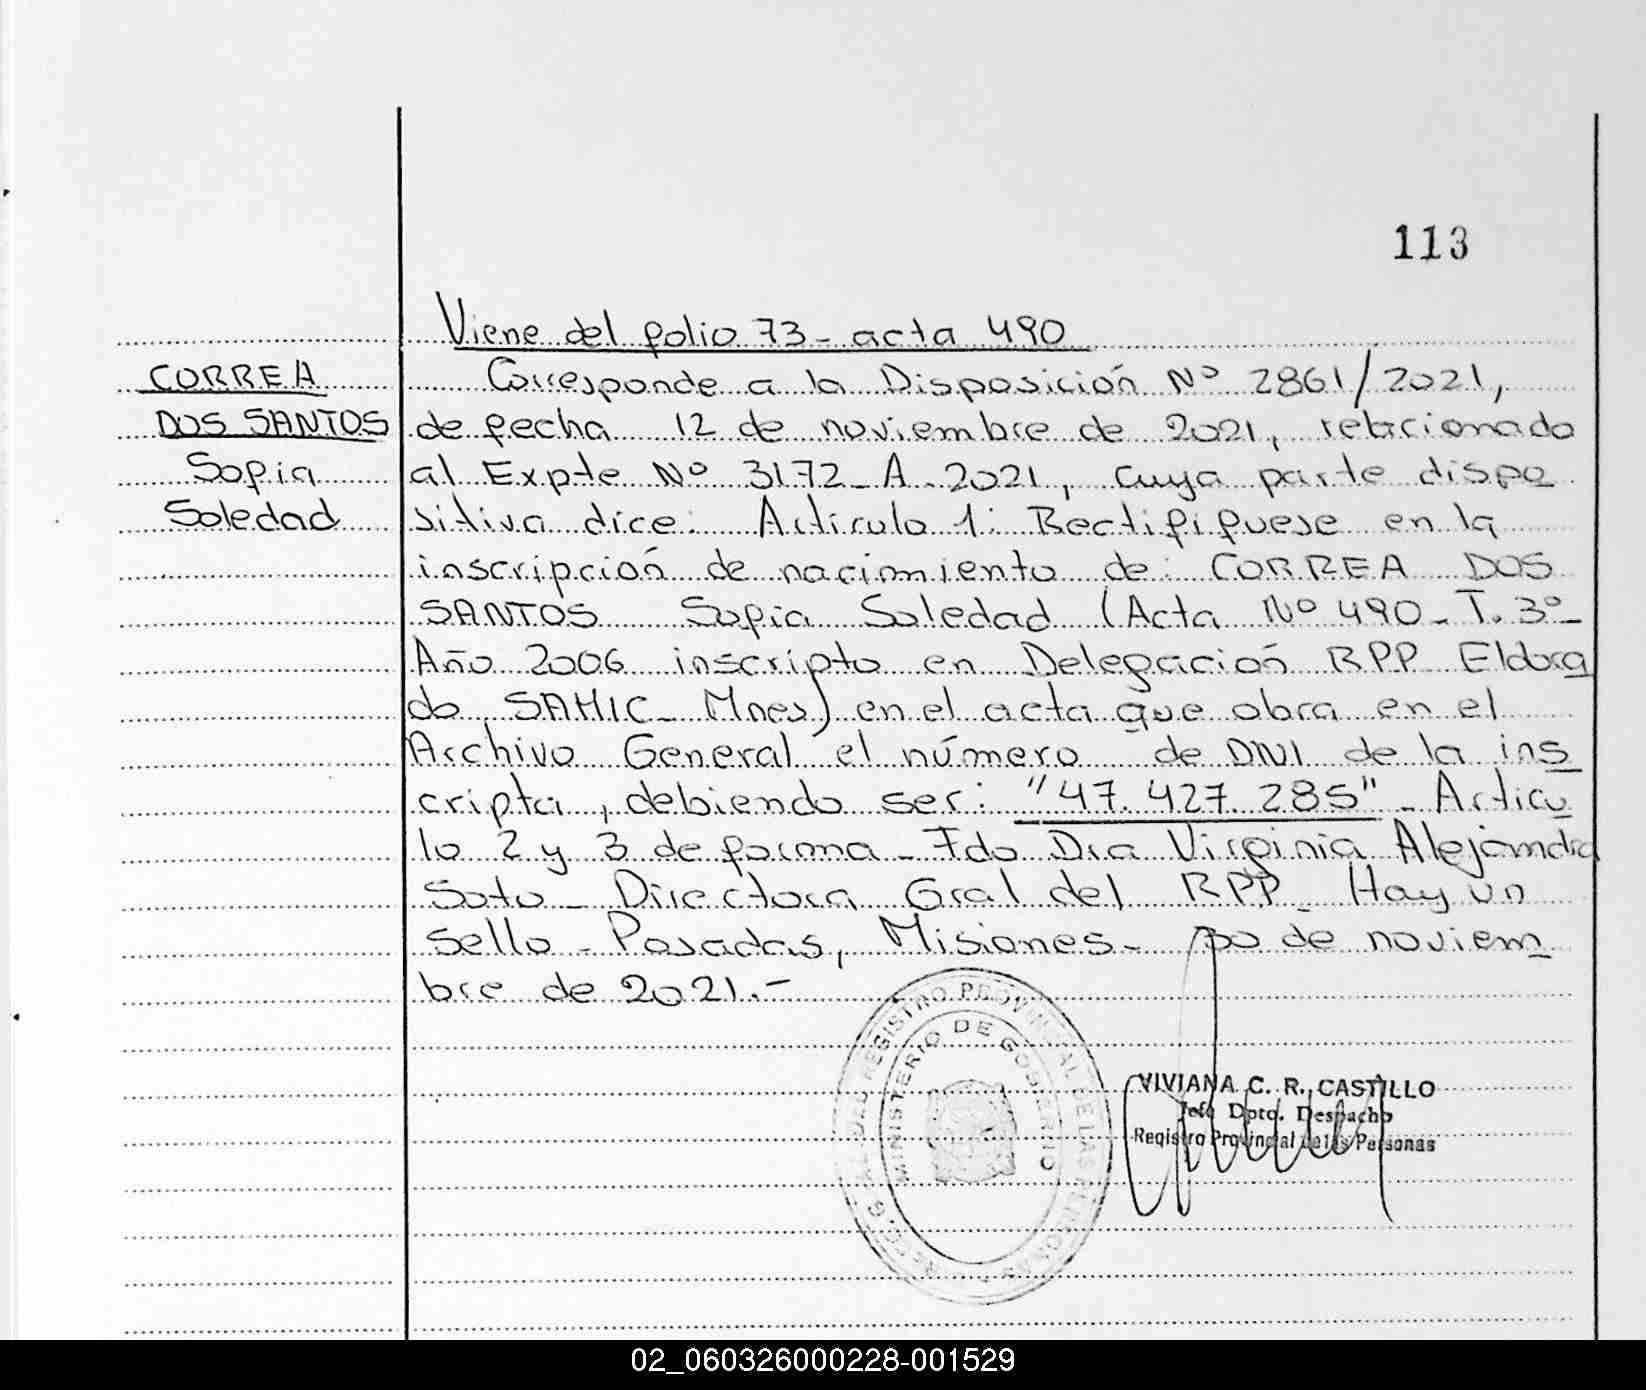 113
Viene del folio 73 - acta 490
CORREA
DOS SANTOS
Sofia
Soledad
Corresponde a la Disposición Nº 2861/2021,
de fecha 12 de noviembre de 2021, relacionado
al Expte Nº 3172-A-2021, cuya parte dispo
sitiva dice: Articulo 1: Rectififuese en la
inscripción de nacimiento de: CORREA DOS
SANTOS Sofia Soledad (Acta Nº 490 - T. 3º -
Año 2006 inscripto en Delegación RPP Eldora
do, SAMIC - Mnes) en el acta que obra en el
Archivo General el número de DNI de la ins
cripta, debiendo ser: "47.427.285" - Articu
lo 2 y 3 de forma - Fdo Dra Virginia Alejandra
Soto - Directora Gral del RPP - Hay un
sello - Posadas, Misiones - 30 de noviem
bre de 2021.-
REGISTRO PROVINCIAL DE LAS PERSONAS
MINISTERIO DE GOBIERNO
VIVIANA C. R. CASTILLO
Jefe Dpto. Despacho
Registro Provincial de las Personas
02_060326000228-001529